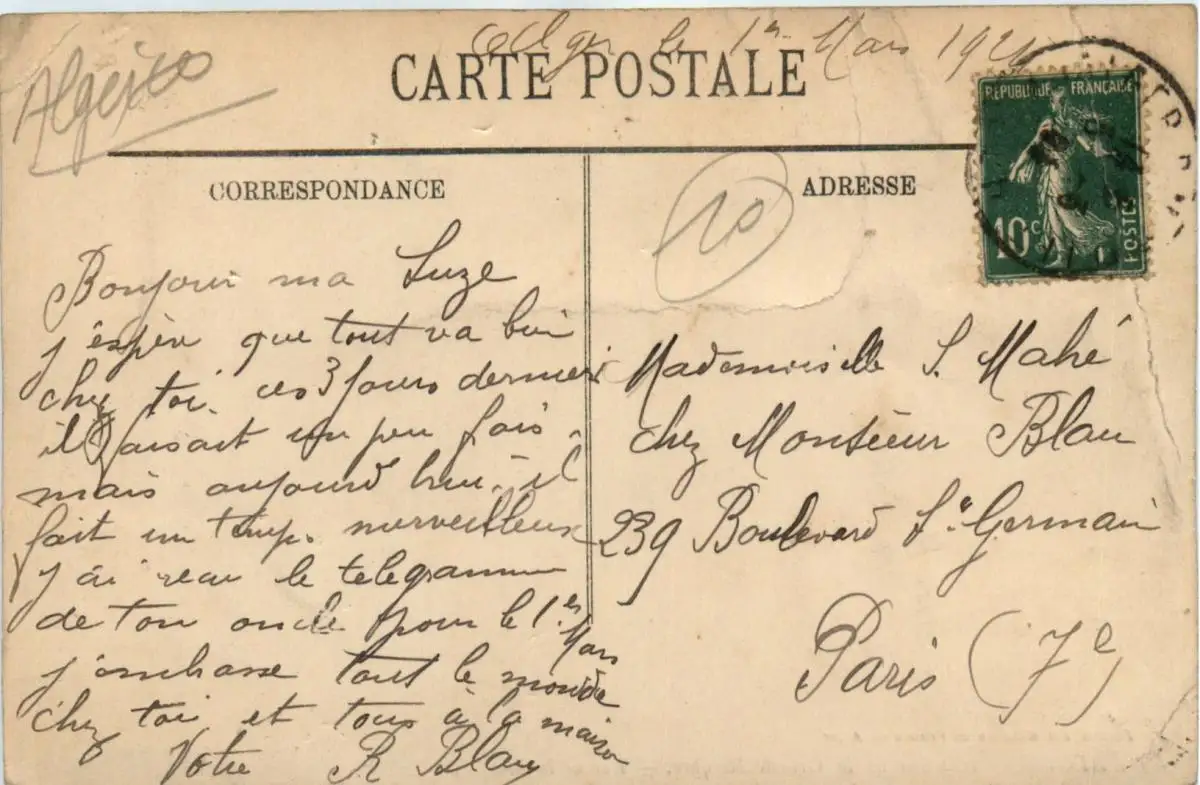 Alger le 1er Mars 192
CARTE POSTALE
RÉPUBLIQUE FRANÇAISE
10c
POSTES
CORRESPONDANCE
ADRESSE
10
Bonjour ma Suze
j'espère que tout va bien
chez toi. ces 3 jours dernier
il faisait un peu fois.
mais aujourd'hui il
fait un temps merveilleux
j'ai recu le telegramme
de ton oncle pour le 1er Mars
j'embrasse tout le monde
chez toi et tous à la maison
Votre R Blau
Mademoiselle S. Mahé
chez Monsieur Blau
239 Boulevard St Germain
Paris (7e)